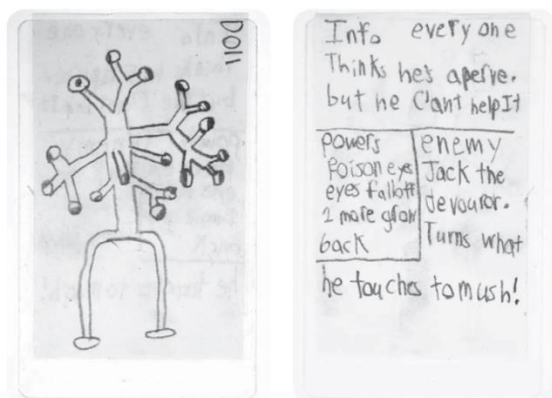 Doli
Info everyone
Thinks he's aperve.
but he C'ant help It
powers
Poison eyes
eyes falloff
2 more grow
back
enemy
Jack the
devouror.
Turns what
he touches to mush!